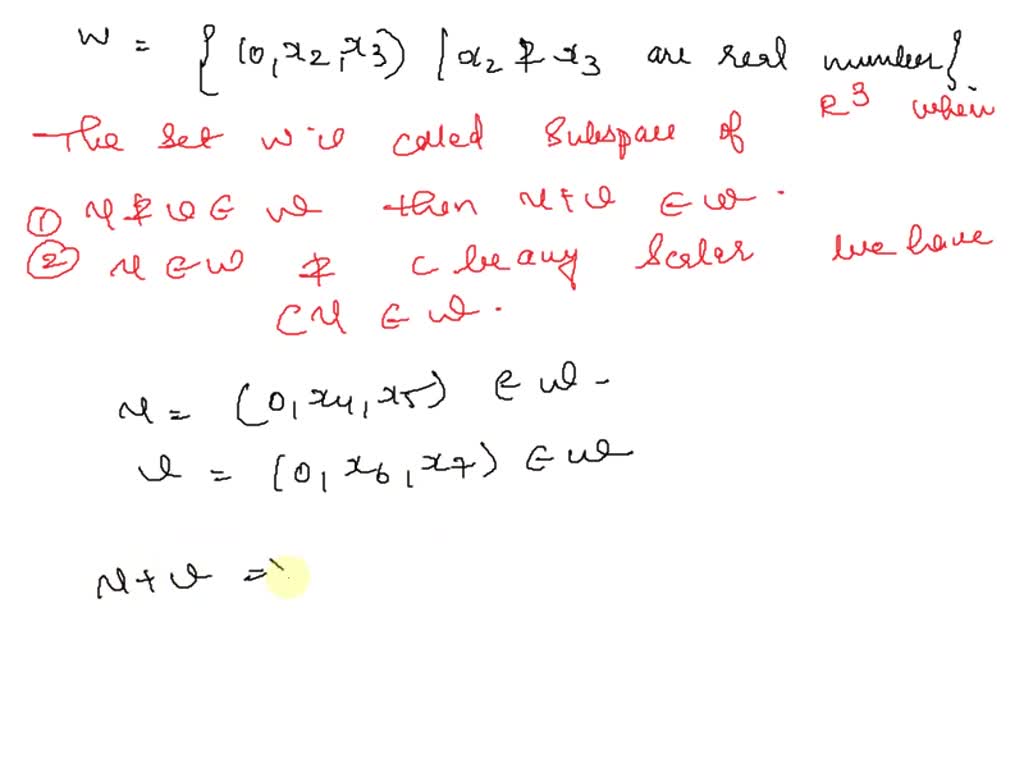 W = { (0, x2, x3) / x2 & x3 are real number }.
The set W is called Subspace of R^3 when
① u & v ∈ W then u + v ∈ W.
② u ∈ W & c be any Scalar we have
cu ∈ W.
u = (0, x4, x5) ∈ W.
v = (0, x6, x7) ∈ W
u + v =